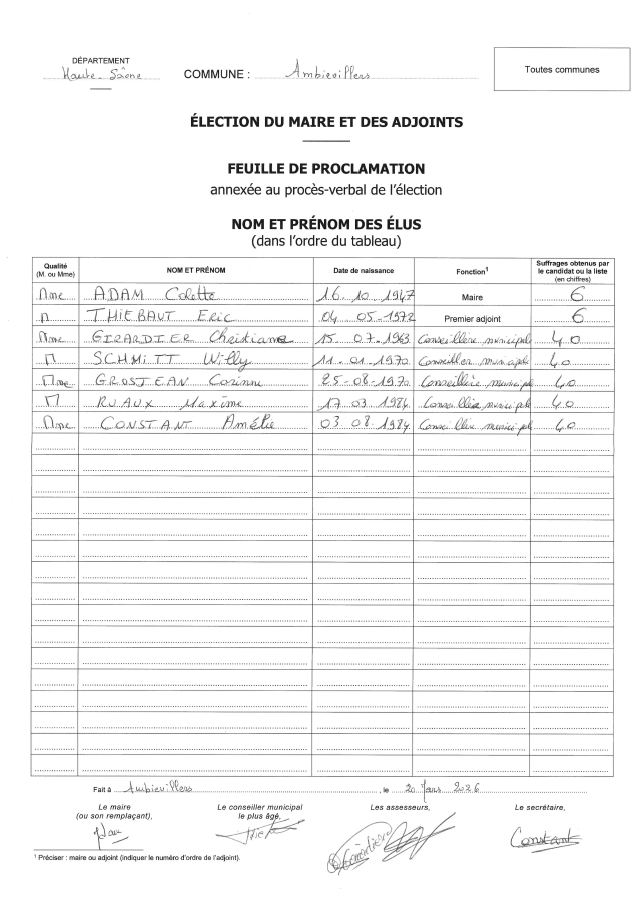 DÉPARTEMENT
Haute-Saône
COMMUNE : Ambiévillers
Toutes communes
ÉLECTION DU MAIRE ET DES ADJOINTS
FEUILLE DE PROCLAMATION
annexée au procès-verbal de l'élection
NOM ET PRÉNOM DES ÉLUS
(dans l'ordre du tableau)
Qualité (M. ou Mme) NOM ET PRÉNOM Date de naissance Fonction¹ Suffrages obtenus par le candidat ou la liste (en chiffres)
Mme ADAM Colette 16.10.1947 Maire 6
M THIEBAUT Eric 04 05-1972 Premier adjoint 6
Mme GIRARDIER Christiane 15.07-1963 Conseillère municipale 40
M SCHMITT Willy 11-01-1970 Conseiller municipal 40
Mme GROSJEAN Corinne 25-08-1970 Conseillère municipale 40
M RUAUX Maxime 17 03.1984 Conseiller municipal 40
Mme CONSTANT Amélie 03.08.1984 Conseillère municipale 40
Fait à Ambiévillers, le 20 Mars 2026
Le maire (ou son remplaçant), Le conseiller municipal le plus âgé, Les assesseurs, Le secrétaire,
Constant
¹ Préciser : maire ou adjoint (indiquer le numéro d'ordre de l'adjoint).